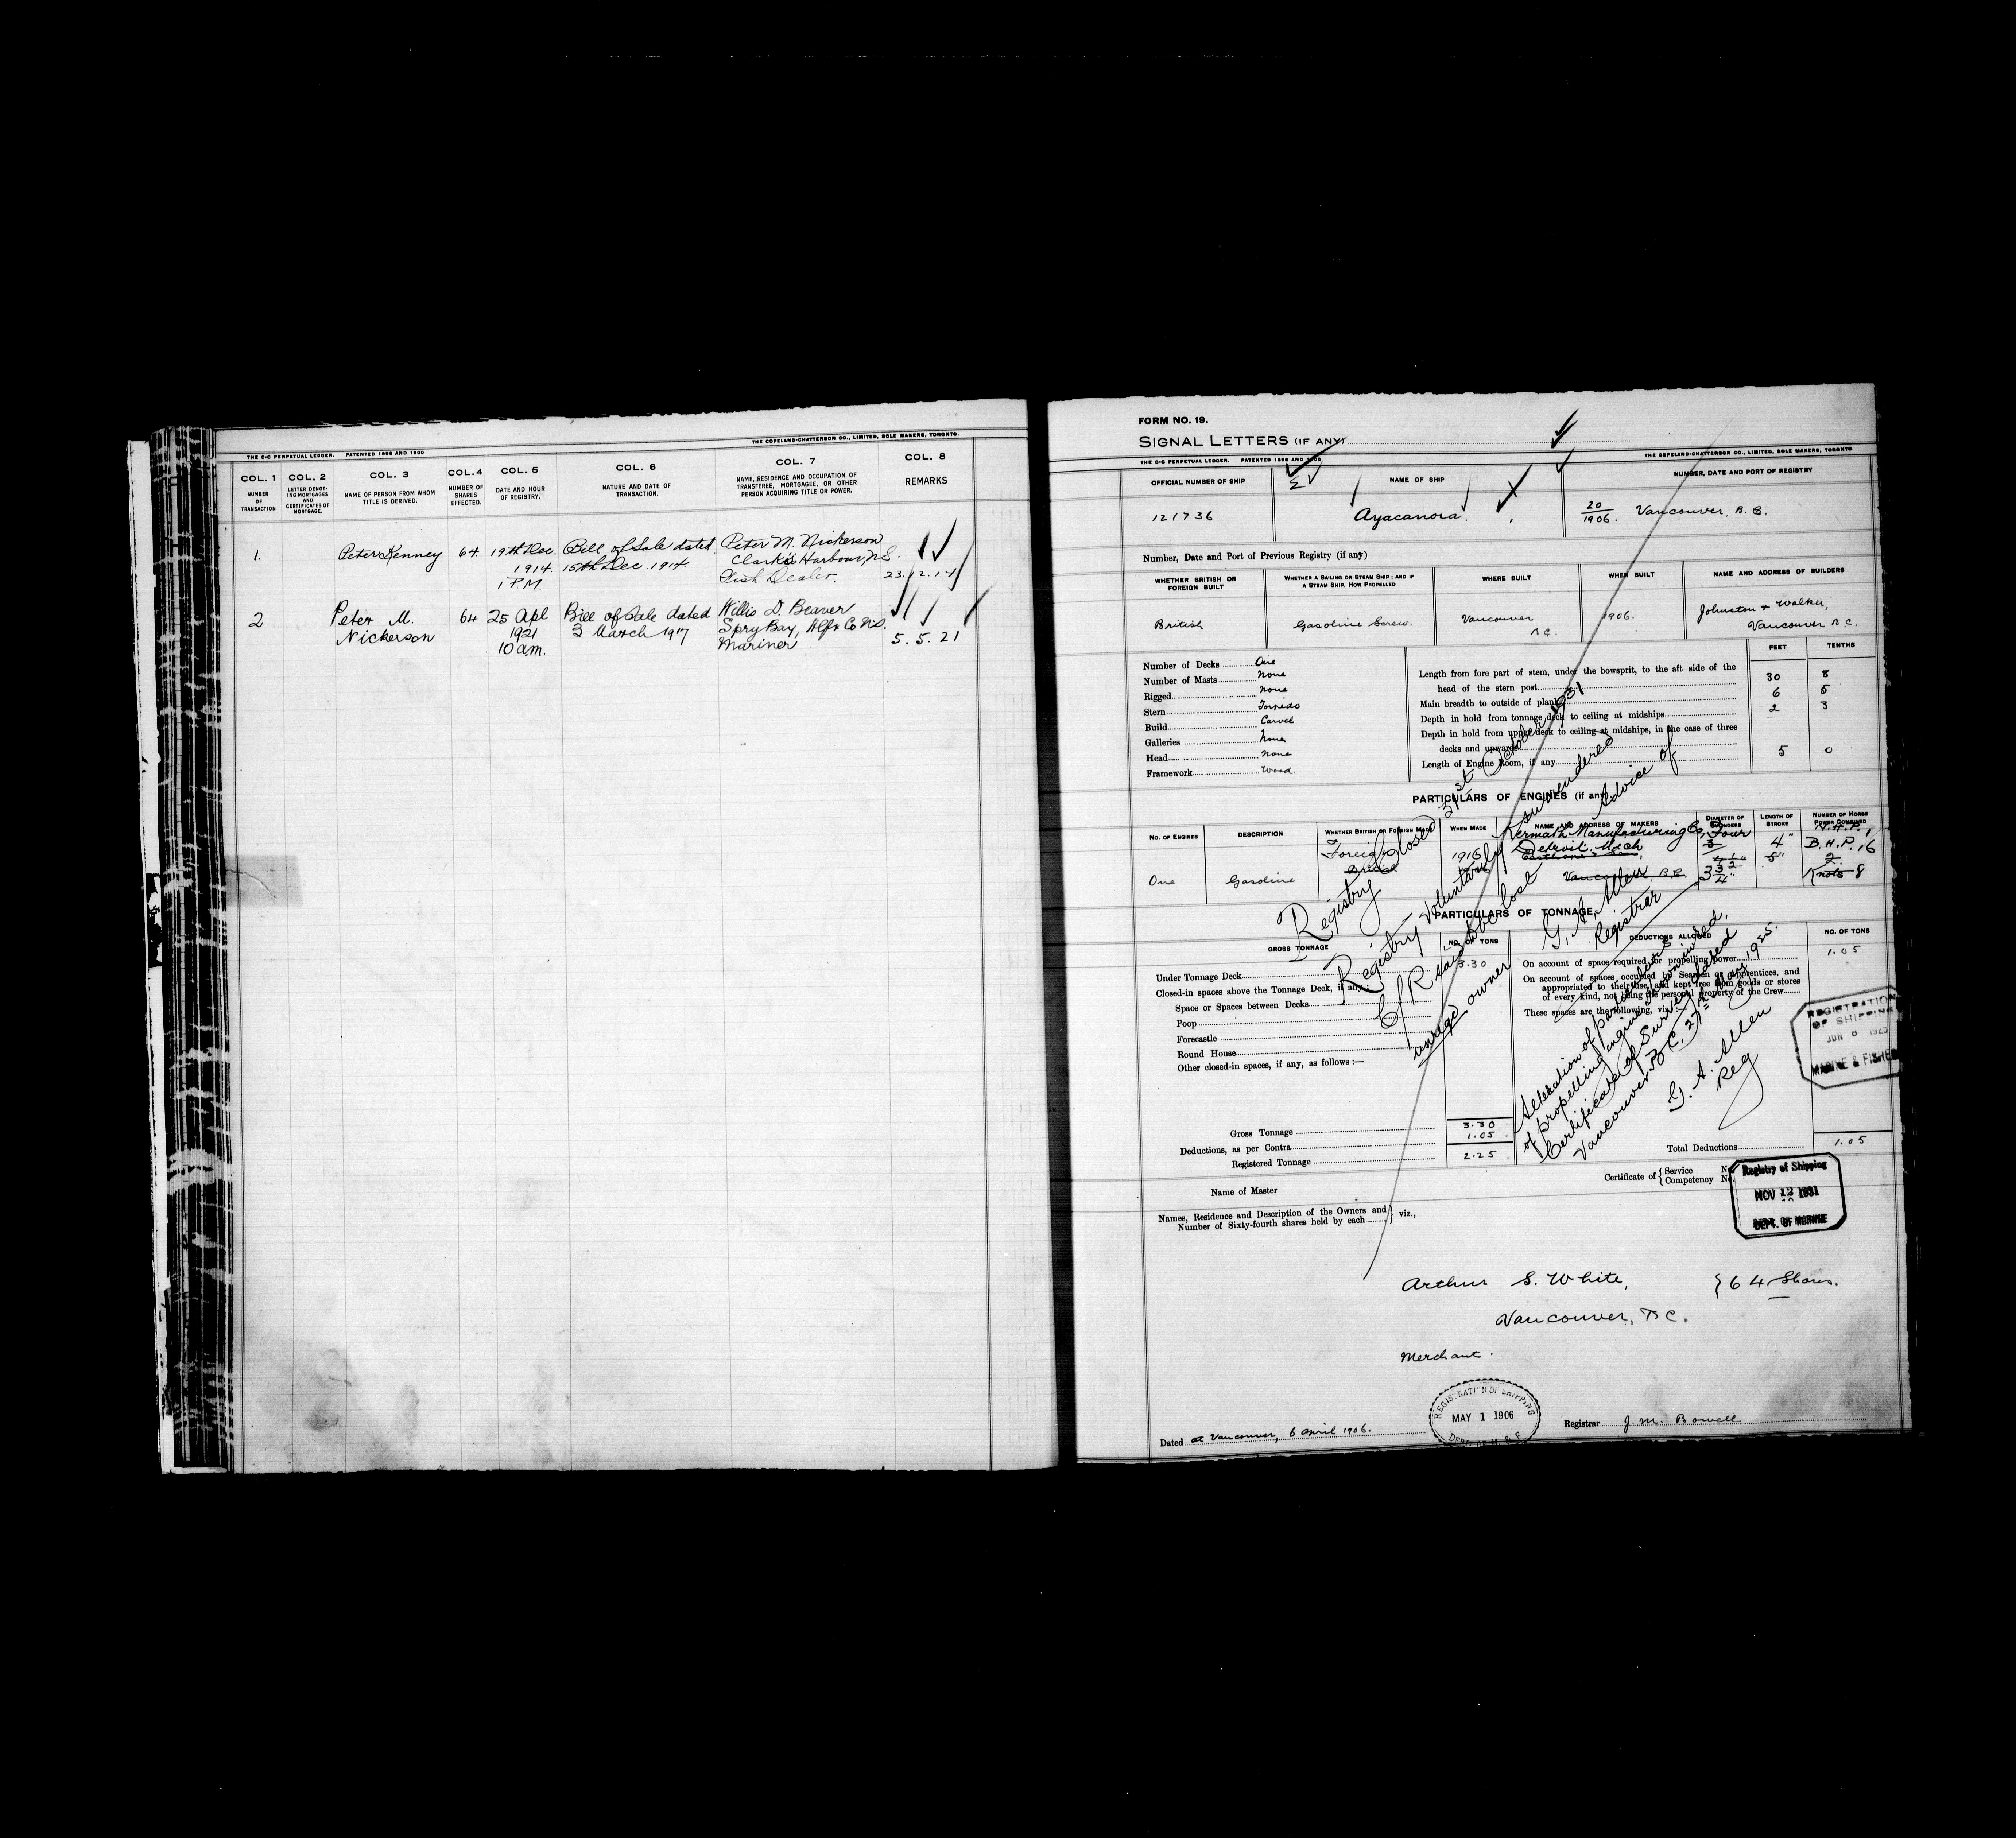 THE C-C PERPETUAL LEDGER. PATENTED 1896 AND 1900
THE COPELAND-CHATTERSON CO., LIMITED, SOLE MAKERS, TORONTO.
COL. 1
NUMBER OF TRANSACTION
COL. 2
LETTER DENOTING MORTGAGES AND CERTIFICATES OF MORTGAGE.
COL. 3
NAME OF PERSON FROM WHOM TITLE IS DERIVED.
COL. 4
NUMBER OF SHARES EFFECTED.
COL. 5
DATE AND HOUR OF REGISTRY.
COL. 6
NATURE AND DATE OF TRANSACTION.
COL. 7
NAME, RESIDENCE AND OCCUPATION OF TRANSFEREE, MORTGAGEE, OR OTHER PERSON ACQUIRING TITLE OR POWER.
COL. 8
REMARKS
1. Peter Kenney 64 19th Dec. Bill of Sale dated Peter M. Nickerson
1914 15th Dec. 1914 Clark's Harbour N.S.
1 P.M. Fish Dealer. 23.12.14
2 Peter M. 64 25 Apl Bill of Sale dated Willis D. Beaver
Nickerson 1921 3 March 1917 Spry Bay, Hfx Co N.S.
10 a.m. Mariner 5.5.21
FORM NO. 19.
SIGNAL LETTERS (IF ANY)
THE C-C PERPETUAL LEDGER. PATENTED 1896 AND 1900
THE COPELAND-CHATTERSON CO., LIMITED, SOLE MAKERS, TORONTO
OFFICIAL NUMBER OF SHIP
NAME OF SHIP
NUMBER, DATE AND PORT OF REGISTRY
2
121736
Ayacanora.
20/1906. Vancouver, B.C.
Number, Date and Port of Previous Registry (if any)
WHETHER BRITISH OR FOREIGN BUILT
WHETHER A SAILING OR STEAM SHIP; AND IF A STEAM SHIP, HOW PROPELLED
WHERE BUILT
WHEN BUILT
NAME AND ADDRESS OF BUILDERS
British
Gasoline Screw.
Vancouver B.C.
1906.
Johnston & Walker, Vancouver B.C.
FEET TENTHS
Number of Decks One
Number of Masts None
Rigged None
Stern Torpedo
Build Carvel
Galleries None
Head None
Framework Wood.
Length from fore part of stem, under the bowsprit, to the aft side of the
head of the stern post 30 8
Main breadth to outside of plank 6 5
Depth in hold from tonnage deck to ceiling at midships 2 3
Depth in hold from upper deck to ceiling at midships, in the case of three
decks and upwards
Length of Engine Room, if any 5 0
PARTICULARS OF ENGINES (if any)
NO. OF ENGINES
DESCRIPTION
WHETHER BRITISH OR FOREIGN MADE
WHEN MADE
NAME AND ADDRESS OF MAKERS
DIAMETER OF CYLINDERS
LENGTH OF STROKE
NUMBER OF HORSE POWER COMBINED
Foreign 1916 Kermath Manufacturing Co, Four N.H.P. 1
Detroit, Mich 4" B.H.P. 16
British
One Gasoline Vancouver B.C. 3 3/4" Knots 8
PARTICULARS OF TONNAGE
GROSS TONNAGE
NO. OF TONS
DEDUCTIONS ALLOWED
NO. OF TONS
Under Tonnage Deck 3.30
Closed-in spaces above the Tonnage Deck, if any:
Space or Spaces between Decks
Poop
Forecastle
Round House
Other closed-in spaces, if any, as follows :—
Gross Tonnage 3.30
Deductions, as per Contra 1.05
Registered Tonnage 2.25
On account of space required for propelling power 1.05
On account of spaces occupied by Seamen or Apprentices, and
appropriated to their use, and kept free from goods or stores
of every kind, not being the personal property of the Crew
These spaces are the following, viz.:
Total Deductions 1.05
Registry Closed 31st October 1931
Registry Voluntarily surrendered
C/R said to be lost Advice of
unregd owner
G. A. Allen
Registrar
Alteration of particulars
of propelling engine shown in red.
Certificate of Survey dated
Vancouver B.C. 27th May 1925.
G. A. Allen
Reg
REGISTRATION
OF SHIPPING
JUN 8 1925
MARINE & FISHE
Certificate of { Service No.
Competency No.
Registry of Shipping
NOV 12 1931
DEPT. OF MARINE
Name of Master
Names, Residence and Description of the Owners and
Number of Sixty-fourth shares held by each } viz.,
Arthur S. White, } 64 Shares.
Vancouver, B.C.
Merchant.
REGISTRATION OF SHIPPING
MAY 1 1906
DEPT. OF M. & F.
Dated at Vancouver, 6 April 1906.
Registrar J. M. Bowell